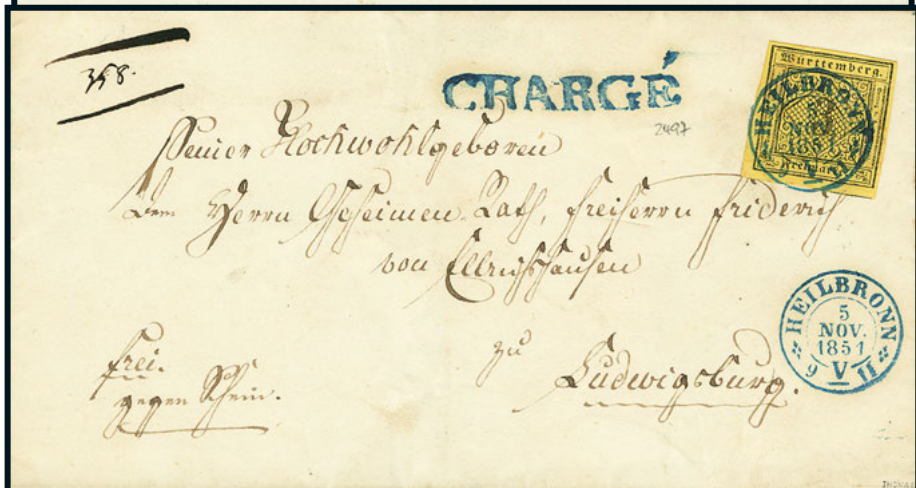 358.
CHARGÉ
2497
Württemberg.
HEILBRONN
NOV.
1851
Freimarke
Seiner Hochwohlgeboren
Dem Herrn Geheimen Rath, Freiherrn Friderich
von Ellrichshausen
zu
Ludwigsburg.
frei.
gegen Schein.
HEILBRONN
5
NOV.
1851
9 V 11